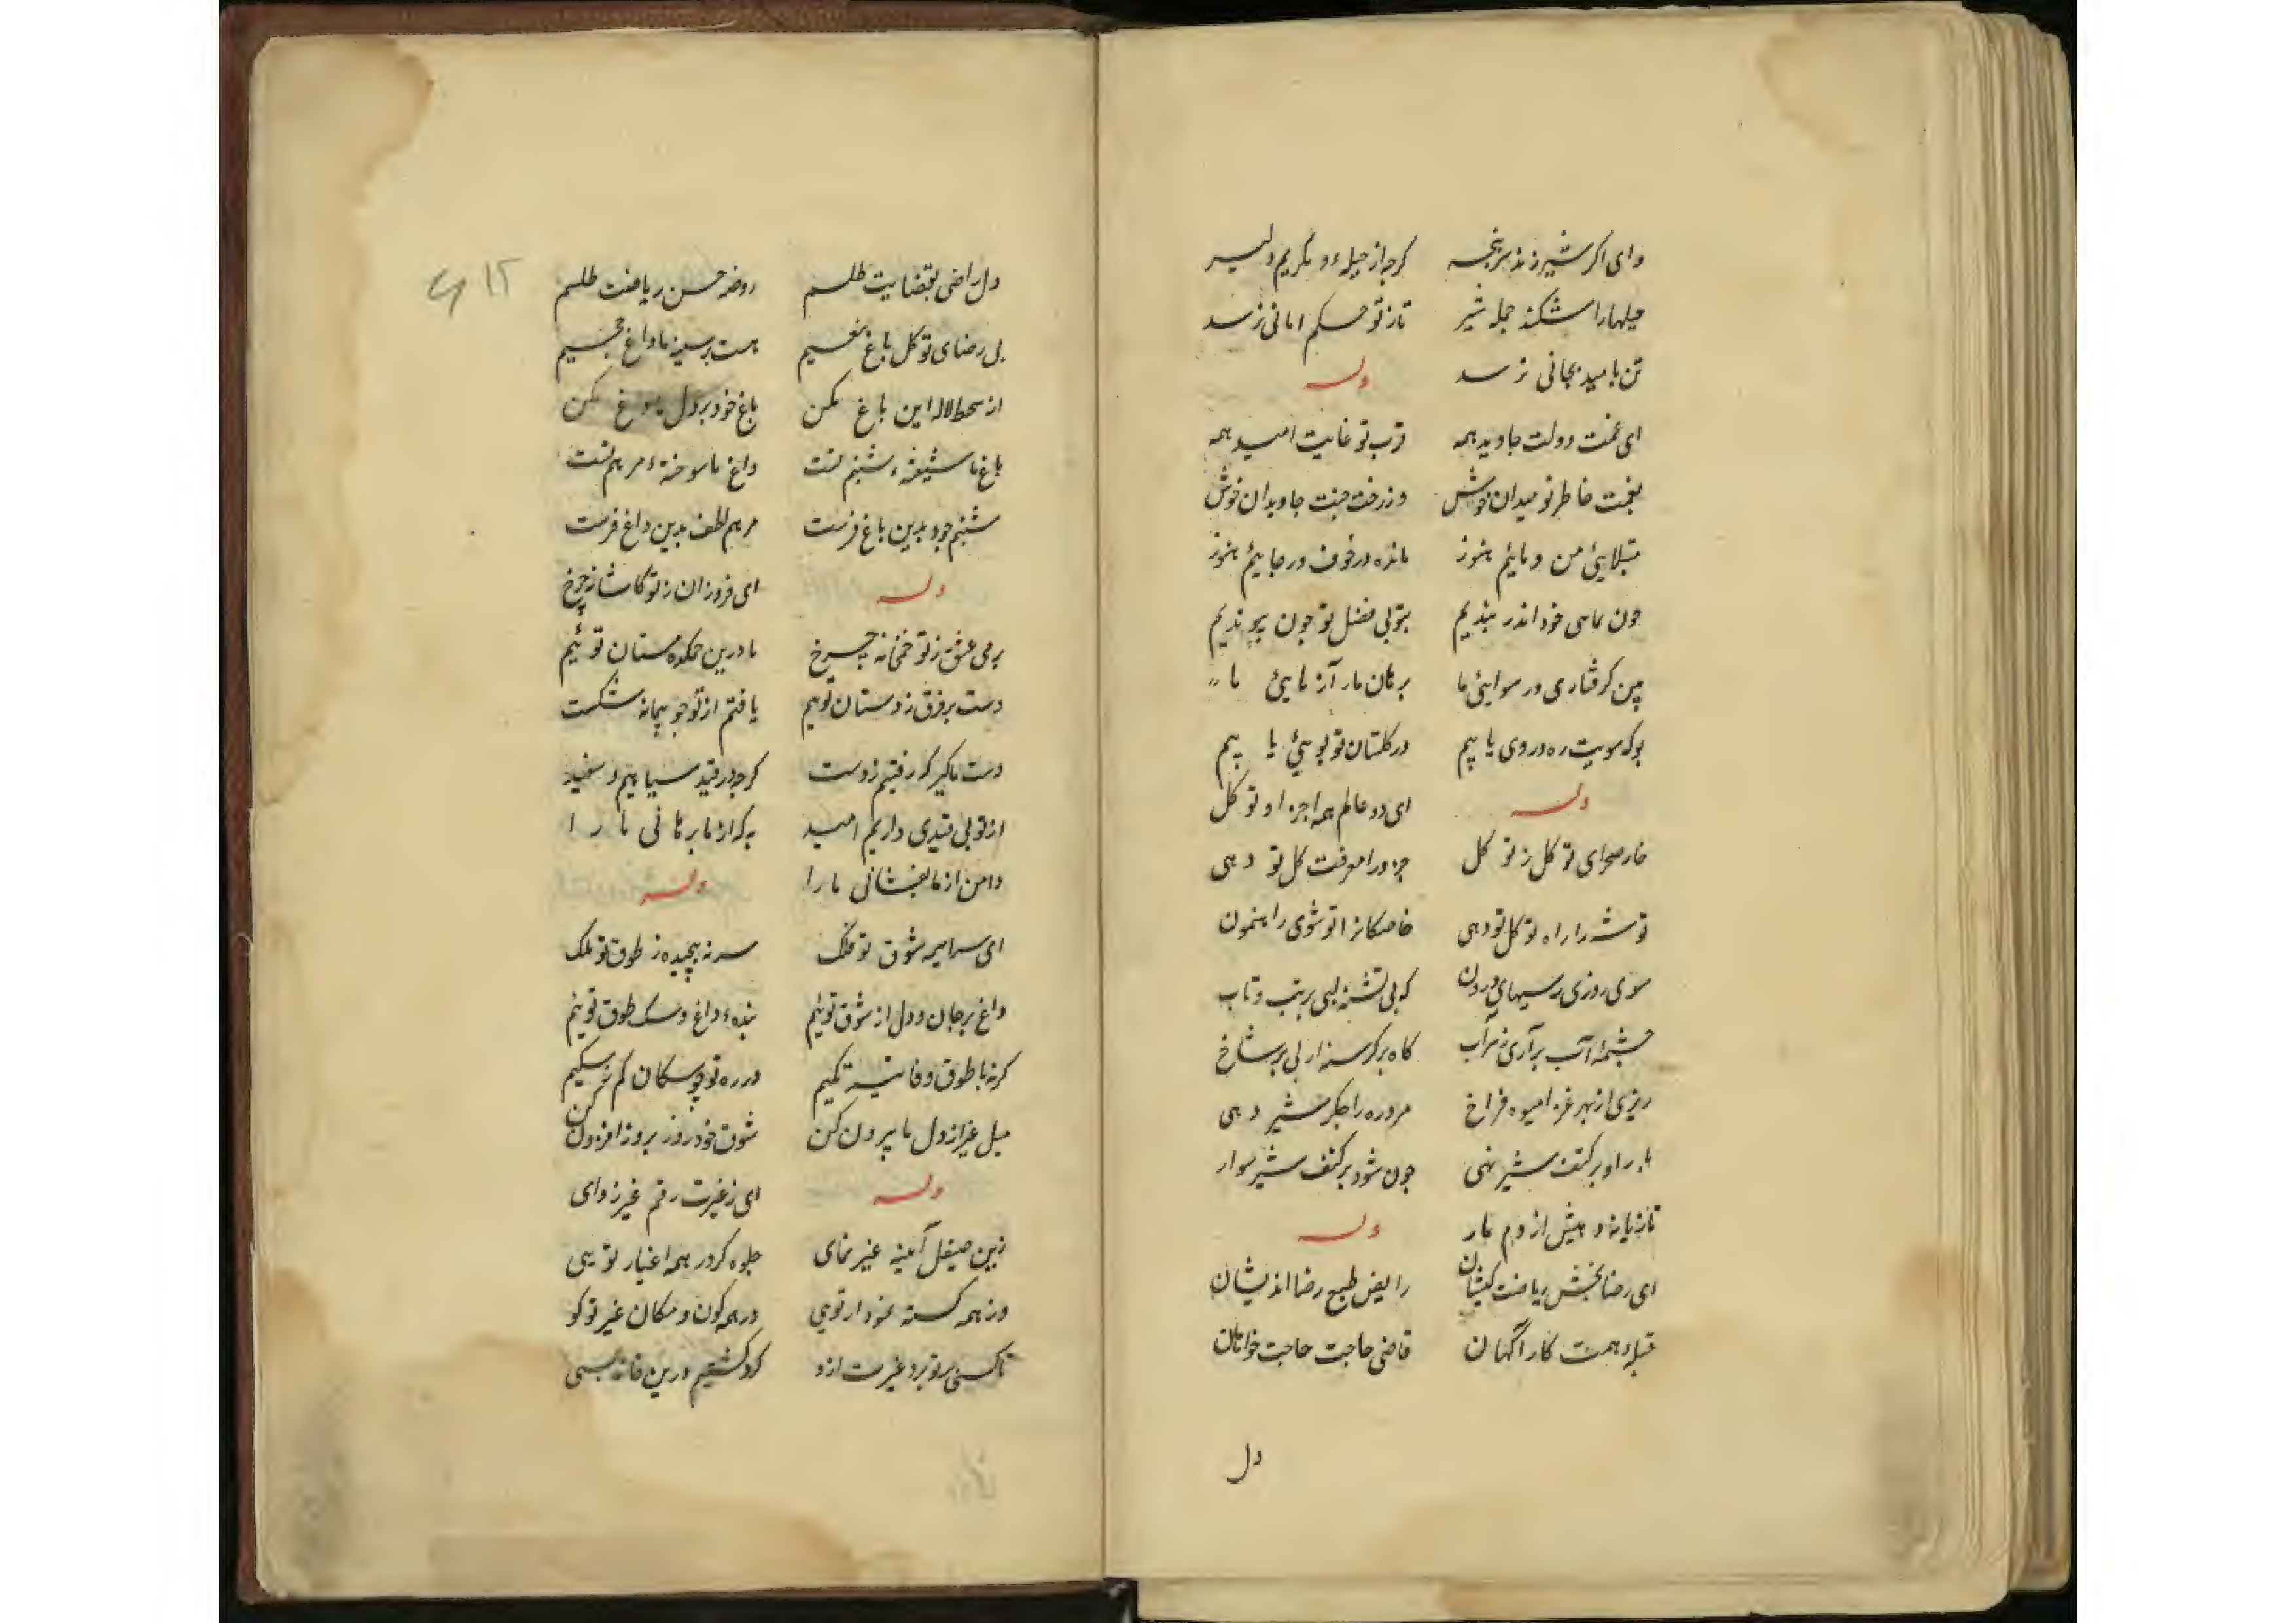 وای اکر شیر زند سرپنجه کرجه از حیله و مکریم دلیر
حیلها را شکند جمله شیر تا ز تو حکم امانی نرسد
تن بامید بجانی نرسد وله
ای غمت دولت جاوید همه قرب تو غایت امید همه
بغمت خاطر نومیدان خوش وز رخت جنت جاویدان خوش
مبتلایئ من و مائیم هنوز مانده در خوف و رجاییم هنوز
جون بماسی خود اندر بندیم بتو بی فضل تو جون پیوندیم
بین کرفتاری و رسوایئ ما برهان مار از مایئ ما
بو که سویت ره و روی یابیم در کلستان تو بویئ یابیم
وله ای دو عالم همه اجزا و تو کل
خار صحرای تو کل ز تو کل جزو را معرفت کل تو دهی
توشه را راه توکل تو دهی خاصکانرا تو شوی راهنمون
سوی روزی رسیهای درون که بی تشنه لبی بر تب و تاب
جشمهٔ آب برآری ز سراب کاه بر کرسنه از بی بر شاخ
ریزی از بهر غذا میوه فراخ مرد ره را جکر شیر دهی
بار او بر کتف شیر نهی جون شود بر کتف شیر سوار
تازیانه دهیش از دم مار وله
ای رضا بخش ریاضت کیشان رایض طبع رضا اندیشان
قبله همت کار آکهان قاضی حاجت حاجت خواهان
دل
دل راضی بقضایت طلبم روضه حسن ریاضت طلبم
بی رضای تو کل باغ نعیم هست بر سینه ما داغ جحیم
از سخط لاله این باغ مکن باغ خود بر دل ما داغ مکن
باغ ما شیفتهء شبنم تست داغ ما سوختهء مرهم تست
شبنم جود بدین باغ فرست مرهم لطف بدین داغ فرست
وله ای فروزان ز تو کاشانه چرخ
بر می عشق ز تو خمخانه چرخ ما درین خمکده مستان توئیم
دست بر فرق ز دستان توئیم یافتیم از تو جو پیمانه شکست
دست ما کیر که رفتیم ز دست کرجه در قید سیاهیم و سفید
از تو بی قیدی داریم امید به که از ما برهانی ما را
دامن از ما بفشانی ما را وله
ای سراسیمه شوق تو فلک سر نه پیچیده ز طوق تو ملک
داغ بر جان و دل از شوق توئیم بندهء داغ و سک طوق توئیم
کر نه با طوق وفا تنکیم در ره تو چو سکان کم ز سکیم
میل غیر از دل ما بیرون کن شوق خود روز بروز افزون کن
وله ای ز غیرت رقم غیر زدای
زین صیقل آئینه غیر نمای جلوه کر در همه اغیار تویی
وز همه کسته نمودار تویی در همه کون و مکان غیر تو کو
تا کسی بر تو برد غیرت ازو کرد کشتیم درین خانه بسی